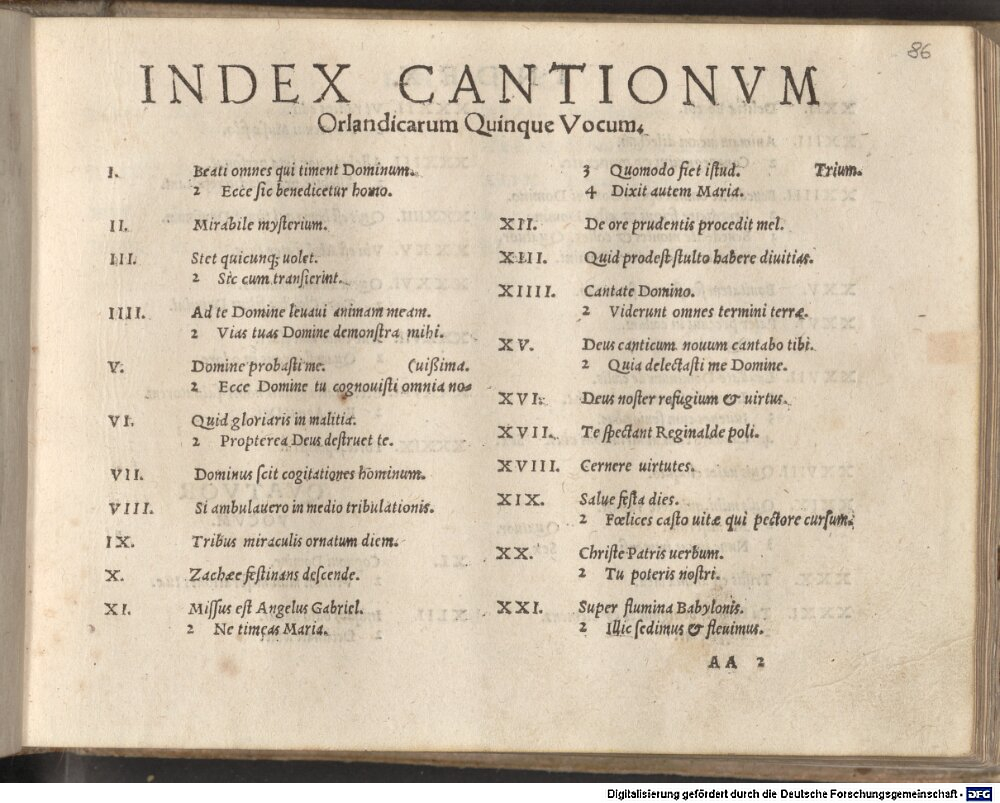 86
INDEX CANTIONVM
Orlandicarum Quinque Vocum.
I. Beati omnes qui timent Dominum.
2 Ecce sic benedicetur homo.
II. Mirabile mysterium.
III. Stet quicunq; uolet.
2 Sic cum transierint.
IIII. Ad te Domine leuaui animam meam.
2 Vias tuas Domine demonstra mihi.
V. Domine probasti me. (uißima.
2 Ecce Domine tu cognouisti omnia no-
VI. Quid gloriaris in malitia.
2 Propterea Deus destruet te.
VII. Dominus scit cogitationes hominum.
VIII. Si ambulauero in medio tribulationis.
IX. Tribus miraculis ornatum diem.
X. Zachæe festinans descende.
XI. Missus est Angelus Gabriel.
2 Ne timeas Maria.
3 Quomodo fiet istud. Trium.
4 Dixit autem Maria.
XII. De ore prudentis procedit mel.
XIII. Quid prodest stulto habere diuitias.
XIIII. Cantate Domino.
2 Viderunt omnes termini terræ.
XV. Deus canticum nouum cantabo tibi.
2 Quia delectasti me Domine.
XVI. Deus noster refugium & uirtus.
XVII. Te spectant Reginalde poli.
XVIII. Cernere uirtutes.
XIX. Salue festa dies.
2 Fœlices casto uitæ qui pectore cursum.
XX. Christe Patris uerbum.
2 Tu poteris nostri.
XXI. Super flumina Babylonis.
2 Illic sedimus & fleuimus.
AA 2
Digitalisierung gefördert durch die Deutsche Forschungsgemeinschaft - DFG